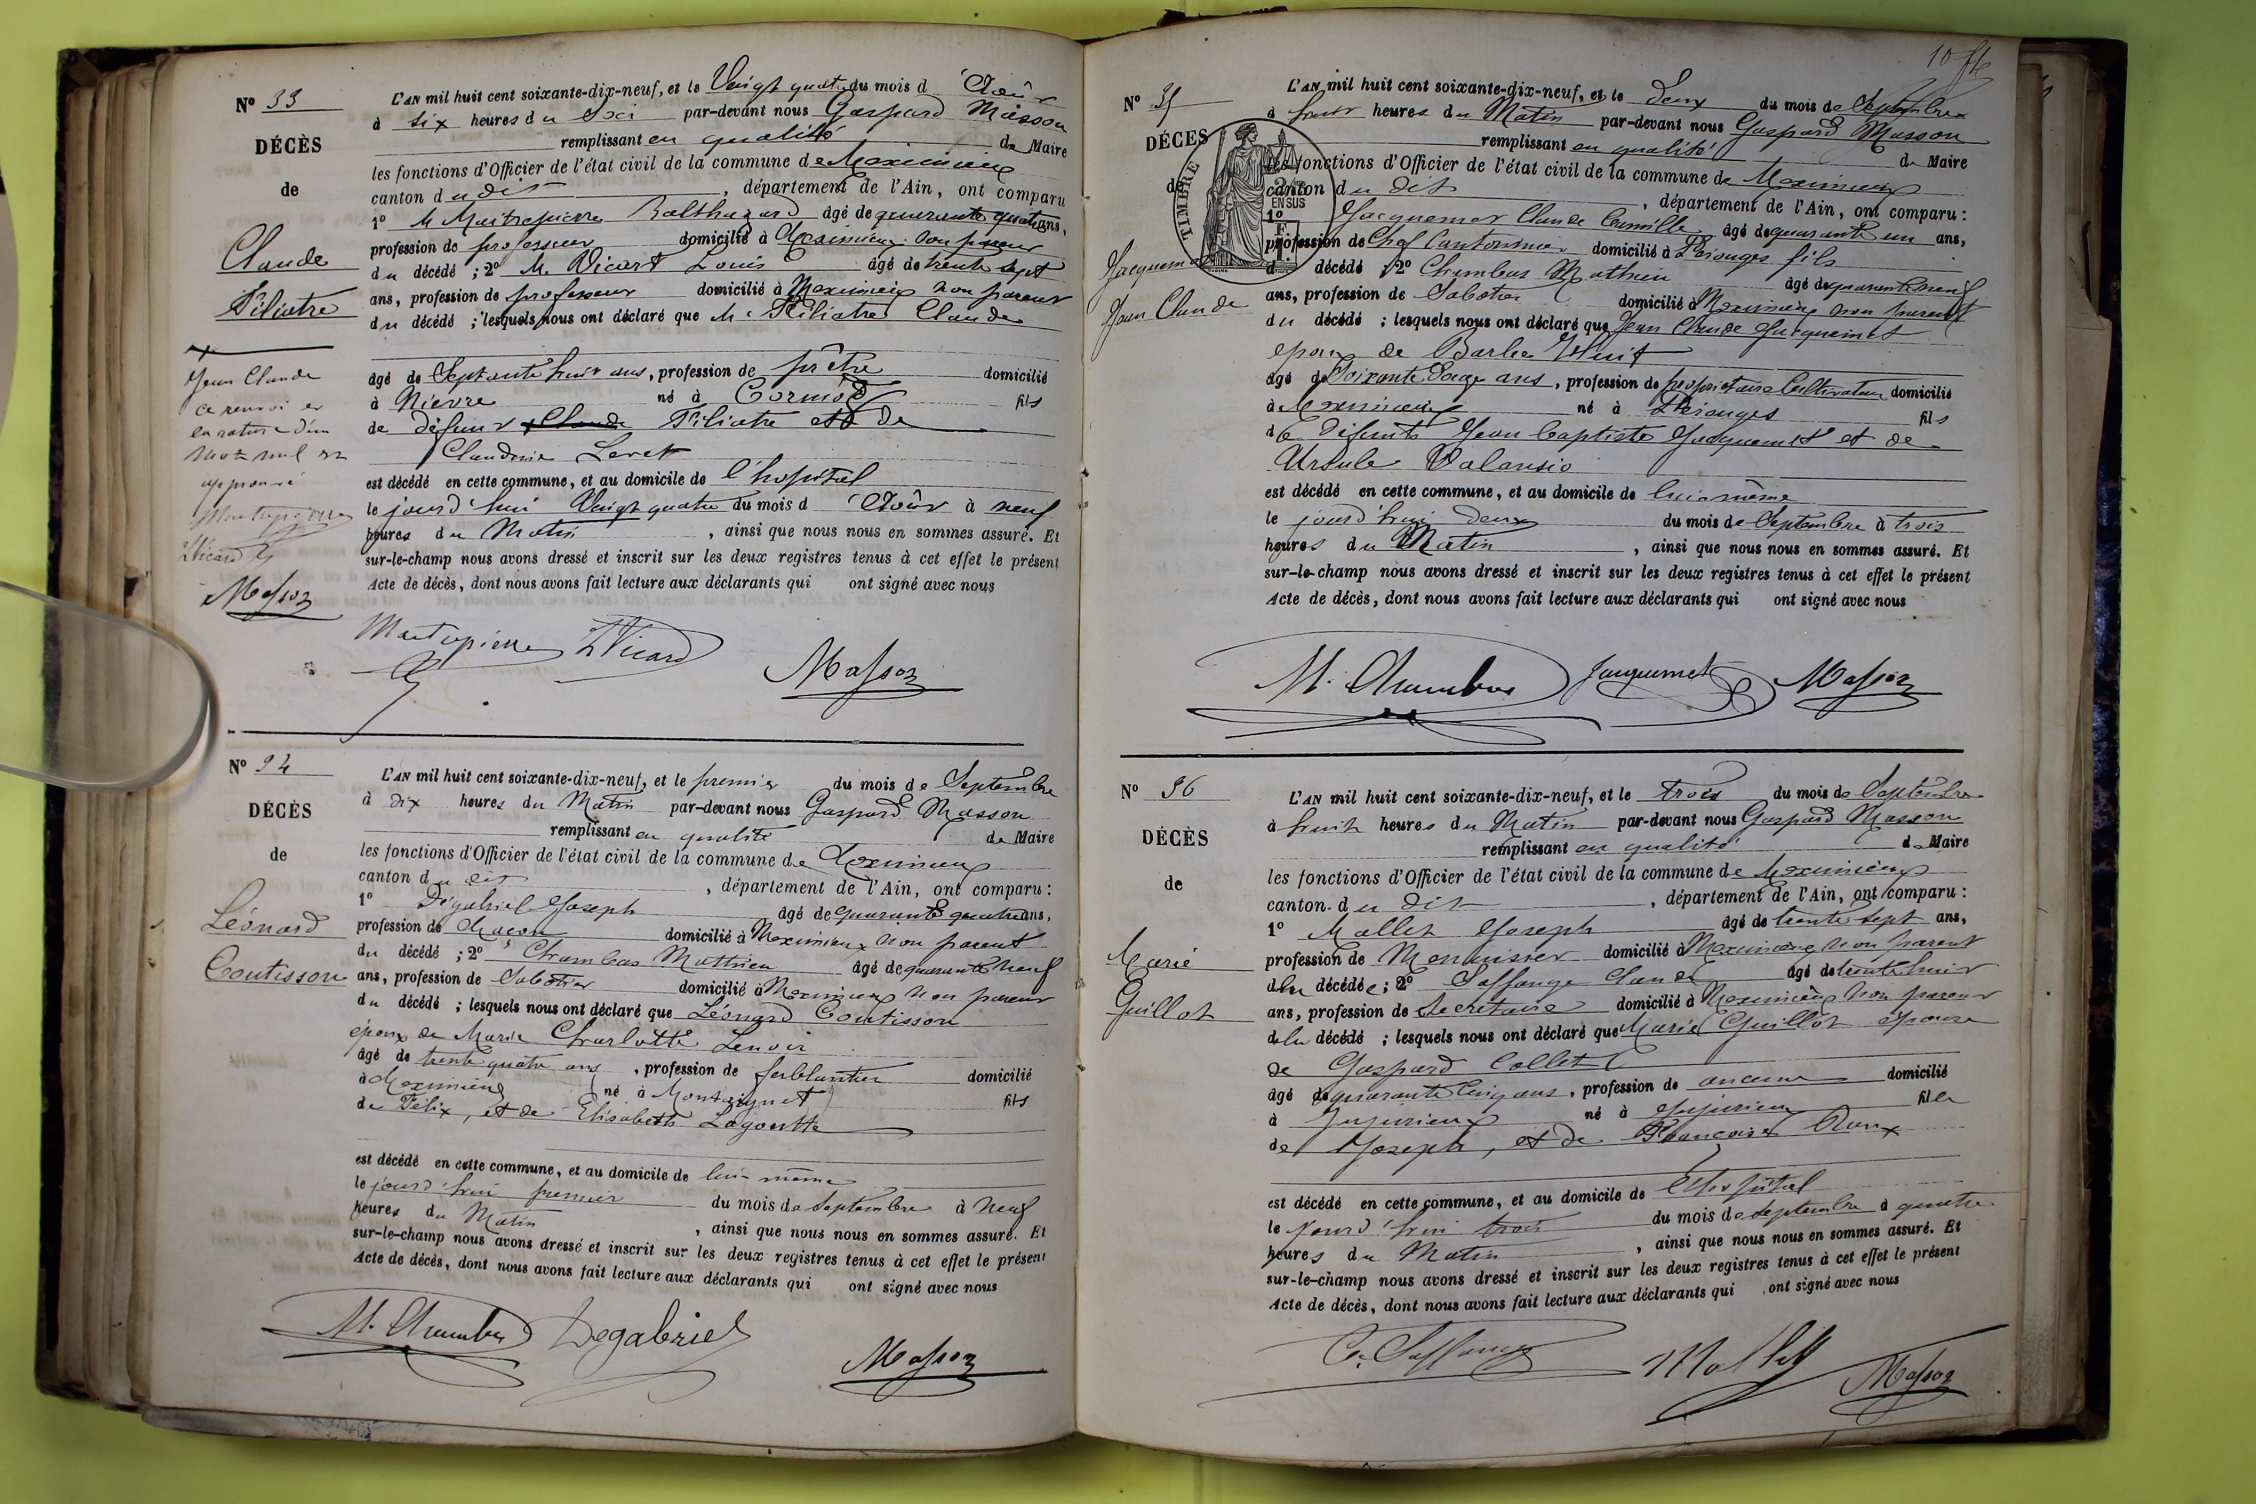 N° 33
DÉCÈS
de
Claude
Filiatre
L'AN mil huit cent soixante-dix-neuf, et le Vingt quatre du mois d'Août
à six heures du Soir par-devant nous Gaspard Masson
remplissant en qualité de Maire
les fonctions d'Officier de l'état civil de la commune de Meximieux
canton du dit, département de l'Ain, ont comparu
1° M Maitrepierre Balthazard âgé de quarante quatre ans,
profession de professeur domicilié à Meximieux non parent
du décédé ; 2° M. Vicart Louis âgé de trente sept
ans, profession de professeur domicilié à Meximieux non parent
du décédé ; lesquels nous ont déclaré que M. Filiatre Claude
âgé de Septante huit ans, profession de prêtre domicilié
à Nievre né à Cormoz fils
de défunt Claude Filiatre et de
Claudine Levet
est décédé en cette commune, et au domicile de l'hopital
le jourd'hui Vingt quatre du mois d'Août à neuf
heures du Matin, ainsi que nous nous en sommes assuré. Et
sur-le-champ nous avons dressé et inscrit sur les deux registres tenus à cet effet le présent
Acte de décès, dont nous avons fait lecture aux déclarants qui ont signé avec nous
Jean Claude
ce renvoi et
la rature d'un
mot nul
approuvé
Maitrepierre
LVicard
Masson
Maitrepierre LVicard Masson
N° 34
DÉCÈS
de
Léonard
Coutisson
L'AN mil huit cent soixante-dix-neuf, et le premier du mois de Septembre
à dix heures du Matin par-devant nous Gaspard Masson
remplissant en qualité de Maire
les fonctions d'Officier de l'état civil de la commune de Meximieux
canton du dit, département de l'Ain, ont comparu :
1° Dégabriel Joseph âgé de quarante quatre ans,
profession de Maçon domicilié à Meximieux non parent
du décédé ; 2° Chambas Mathieu âgé de quarante neuf
ans, profession de Sabotier domicilié à Meximieux non parent
du décédé ; lesquels nous ont déclaré que Léonard Coutisson
époux de Marie Charlotte Lenoir
âgé de trente quatre ans, profession de ferblantier domicilié
à Meximieux né à Montaignet fils
de Félix, et de Elisabeth Lagoutte
est décédé en cette commune, et au domicile de lui même
le jourd'hui premier du mois de Septembre à neuf
heures du Matin, ainsi que nous nous en sommes assuré. Et
sur-le-champ nous avons dressé et inscrit sur les deux registres tenus à cet effet le présent
Acte de décès, dont nous avons fait lecture aux déclarants qui ont signé avec nous
M. Chambas Degabriel Masson
N° 35
DÉCÈS
de
Jacquemet
Jean Claude
TIMBRE
EN SUS
L'AN mil huit cent soixante-dix-neuf, et le Deux du mois de Septembre
à huit heures du Matin par-devant nous Gaspard Masson
remplissant en qualité de Maire
les fonctions d'Officier de l'état civil de la commune de Meximieux
canton du dit, département de l'Ain, ont comparu :
1° Jacquemet Claude Camille âgé de quarante un ans,
profession de Chef Cantonnier domicilié à Pérouges fils
d décédé ; 2° Chambas Mathieu âgé de quarante neuf
ans, profession de Sabotier domicilié à Meximieux non parent
du décédé ; lesquels nous ont déclaré que Jean Claude Jacquemet
époux de Barbe
âgé de Soixante Douze ans, profession de propriétaire Cultivateur domicilié
à Meximieux né à Pérouges fils
de Défunts Jean Baptiste Jacquemet et de
Ursule Valansio
est décédé en cette commune, et au domicile de lui même
le jourd'hui deux du mois de Septembre à trois
heures du Matin, ainsi que nous nous en sommes assuré. Et
sur-le-champ nous avons dressé et inscrit sur les deux registres tenus à cet effet le présent
Acte de décès, dont nous avons fait lecture aux déclarants qui ont signé avec nous
M. Chambas Jacquemet Masson
N° 36
DÉCÈS
de
Marie
Guillot
L'AN mil huit cent soixante-dix-neuf, et le trois du mois de Septembre
à huit heures du Matin par-devant nous Gaspard Masson
remplissant en qualité de Maire
les fonctions d'Officier de l'état civil de la commune de Meximieux
canton du dit, département de l'Ain, ont comparu :
1° Mallet Joseph âgé de trente sept ans,
profession de Menuisier domicilié à Meximieux non parent
de la décédée ; 2° Saffange Claude âgé de trente huit
ans, profession de Secrétaire domicilié à Meximieux non parent
de la décédé ; lesquels nous ont déclaré que Marie Guillot épouse
de Gaspard Collet
âgé de quarante cinq ans, profession de aucune domicilié
à Jujurieux né à Jujurieux fille
de Joseph, et de Francoise Roux
est décédé en cette commune, et au domicile de L'hopital
le jourd'hui trois du mois de Septembre à quatre
heures du Matin, ainsi que nous nous en sommes assuré. Et
sur-le-champ nous avons dressé et inscrit sur les deux registres tenus à cet effet le présent
Acte de décès, dont nous avons fait lecture aux déclarants qui ont signé avec nous
C. Saffange Mallet Masson